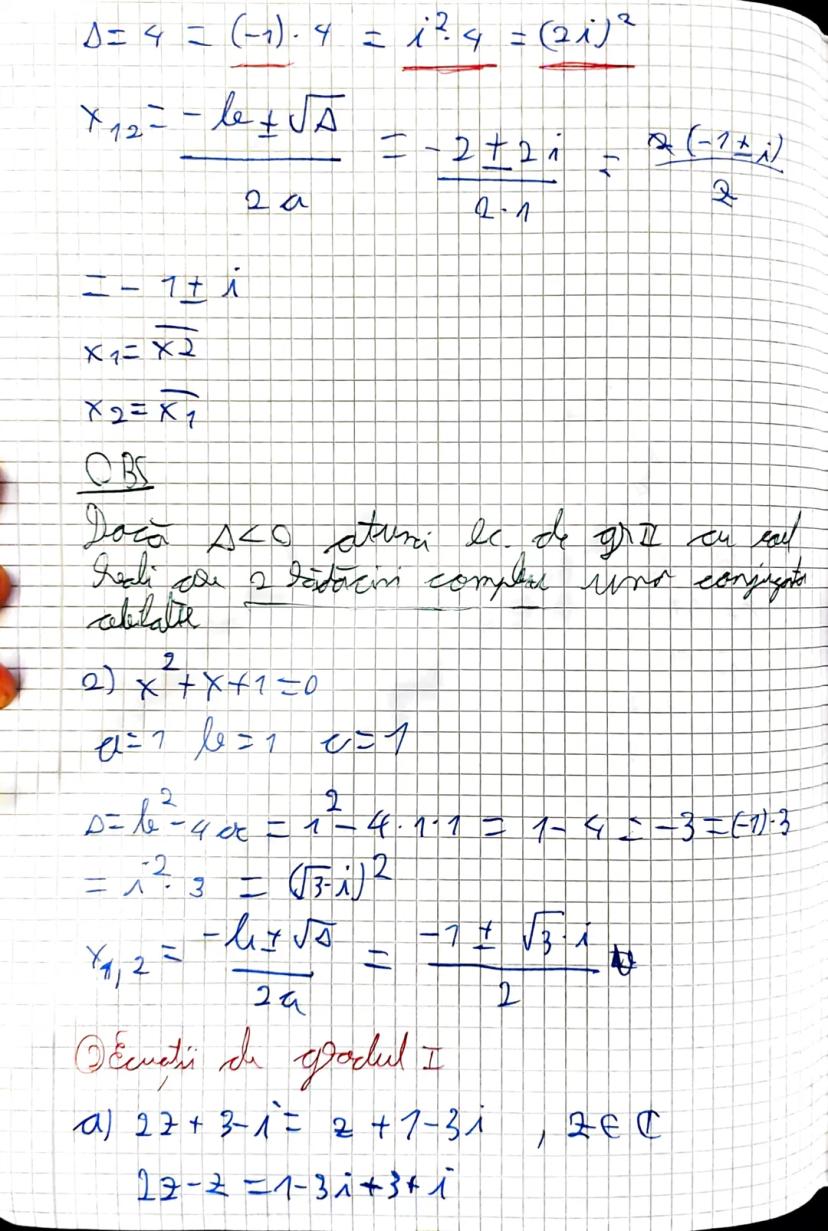 Δ = 4 = (-1)·4 = i²·4 = (2i)²
x₁₂ = (-b ± √Δ) / 2a = (-2 ± 2i) / 2·1 = 2(-1 ± i) / 2
= -1 ± i
x₁ = x̅₂
x₂ = x̅₁
OBS
Dacă Δ<0 atunci ec. de gr II cu coef
reali are 2 rădăcini complexe una conjugata
celeilalte
2) x² + x + 1 = 0
a=1 b=1 c=1
Δ = b² - 4ac = 1² - 4·1·1 = 1 - 4 = -3 = (-1)·3
= i²·3 = (√3·i)²
x₁,₂ = (-b ± √Δ) / 2a = (-1 ± √3·i) / 2
Ecuații de gradul I
a) 2z + 3 - i = z + 1 - 3i , z ∈ ℂ
2z - z = 1 - 3i + 3 + i